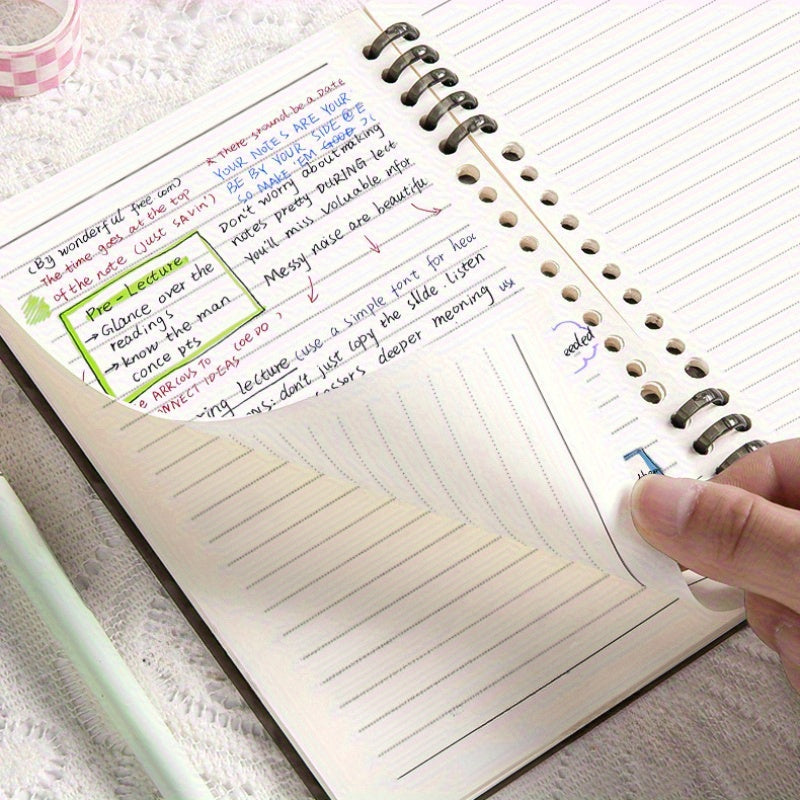 * There should be a Date
YOUR NOTES ARE YOUR
BE BY YOUR SIDE @ E
SO MAKE 'EM GOOD
Don't worry about making
notes pretty DURING lect
You'll miss valuable infor
Messy noise are beautiful
(By wonderful free com)
The time goes at the top
of the note (Just SAvin')
Pre-Lecture
→Glance over the
readings
→know the man
conce pts
e ARROWS TO
NNECT IDEAS
ing lecture (use a simple font for
ons: don't just copy the slide. listen
deeper meoning
eeded